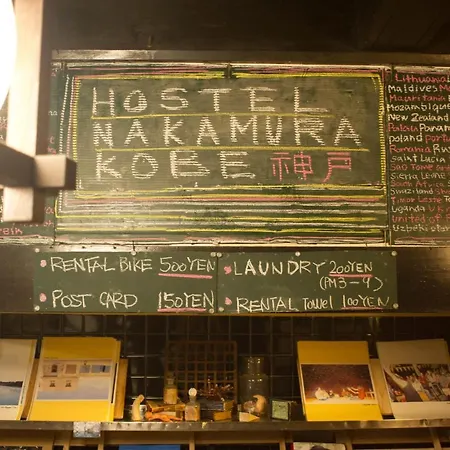 HOSTEL
NAKAMURA
KOBE 神戸
RENTAL BIKE 500YEN
POST CARD 150YEN
LAUNDRY 200YEN
(PM3-9)
RENTAL TOWEL 100YEN
Lithuania
Maldives
Mauritania
Mozambique
New Zealand
Panama
Poland
Romania
Saint Lucia
Sao Tome
Sierra Leone
South Africa
Swaziland
Timor Leste
Uganda
United
Uzbekistan